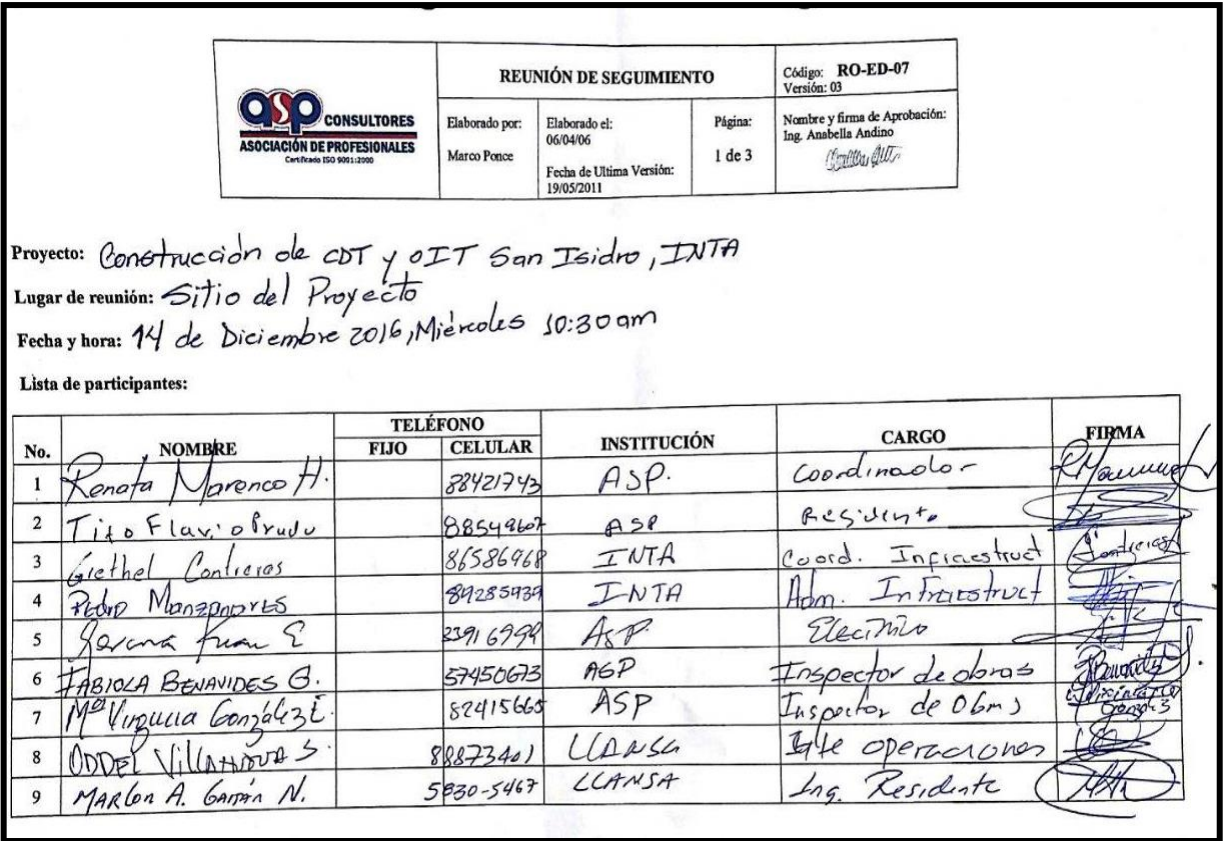 asp CONSULTORES
ASOCIACIÓN DE PROFESIONALES
Certificado ISO 9001:2000
REUNIÓN DE SEGUIMIENTO
Código: RO-ED-07
Versión: 03
Elaborado por:
Marco Ponce
Elaborado el:
06/04/06
Fecha de Ultima Versión:
19/05/2011
Página:
1 de 3
Nombre y firma de Aprobación:
Ing. Anabella Andino
Proyecto: Construcción de CDT y OIT San Isidro, INTA
Lugar de reunión: Sitio del Proyecto
Fecha y hora: 14 de Diciembre 2016, Miércoles 10:30 am
Lista de participantes:
No. NOMBRE TELÉFONO FIJO CELULAR INSTITUCIÓN CARGO FIRMA
1 Renata Marenco H. 88421743 ASP. Coordinador
2 Tito Flavio Prudo ASP Residente
3 Giethel Contreras 86586968 INTA Coord. Infraestruct Contreras
4 Pedro Manzanares INTA Adm. Infraestruct
5 ASP.
6 FABIOLA BENAVIDES G. 57450673 ASP Inspector de obras
7 Mª González 82415665 ASP Inspector de Obras
8 ODDEL S. 88873401 LLANSA operaciones
9 MARlon A. GAITÁN N. 5830-5467 LLANSA Ing. Residente